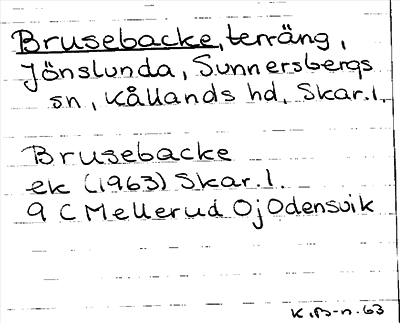 Brusebacke, terräng,
Jönslunda, Sunnersbergs
sn, Kållands hd, Skar.l.
Brusebacke
ek (1963) Skar.l.
9 C Mellerud 0j Odensvik
K.B-n. 63